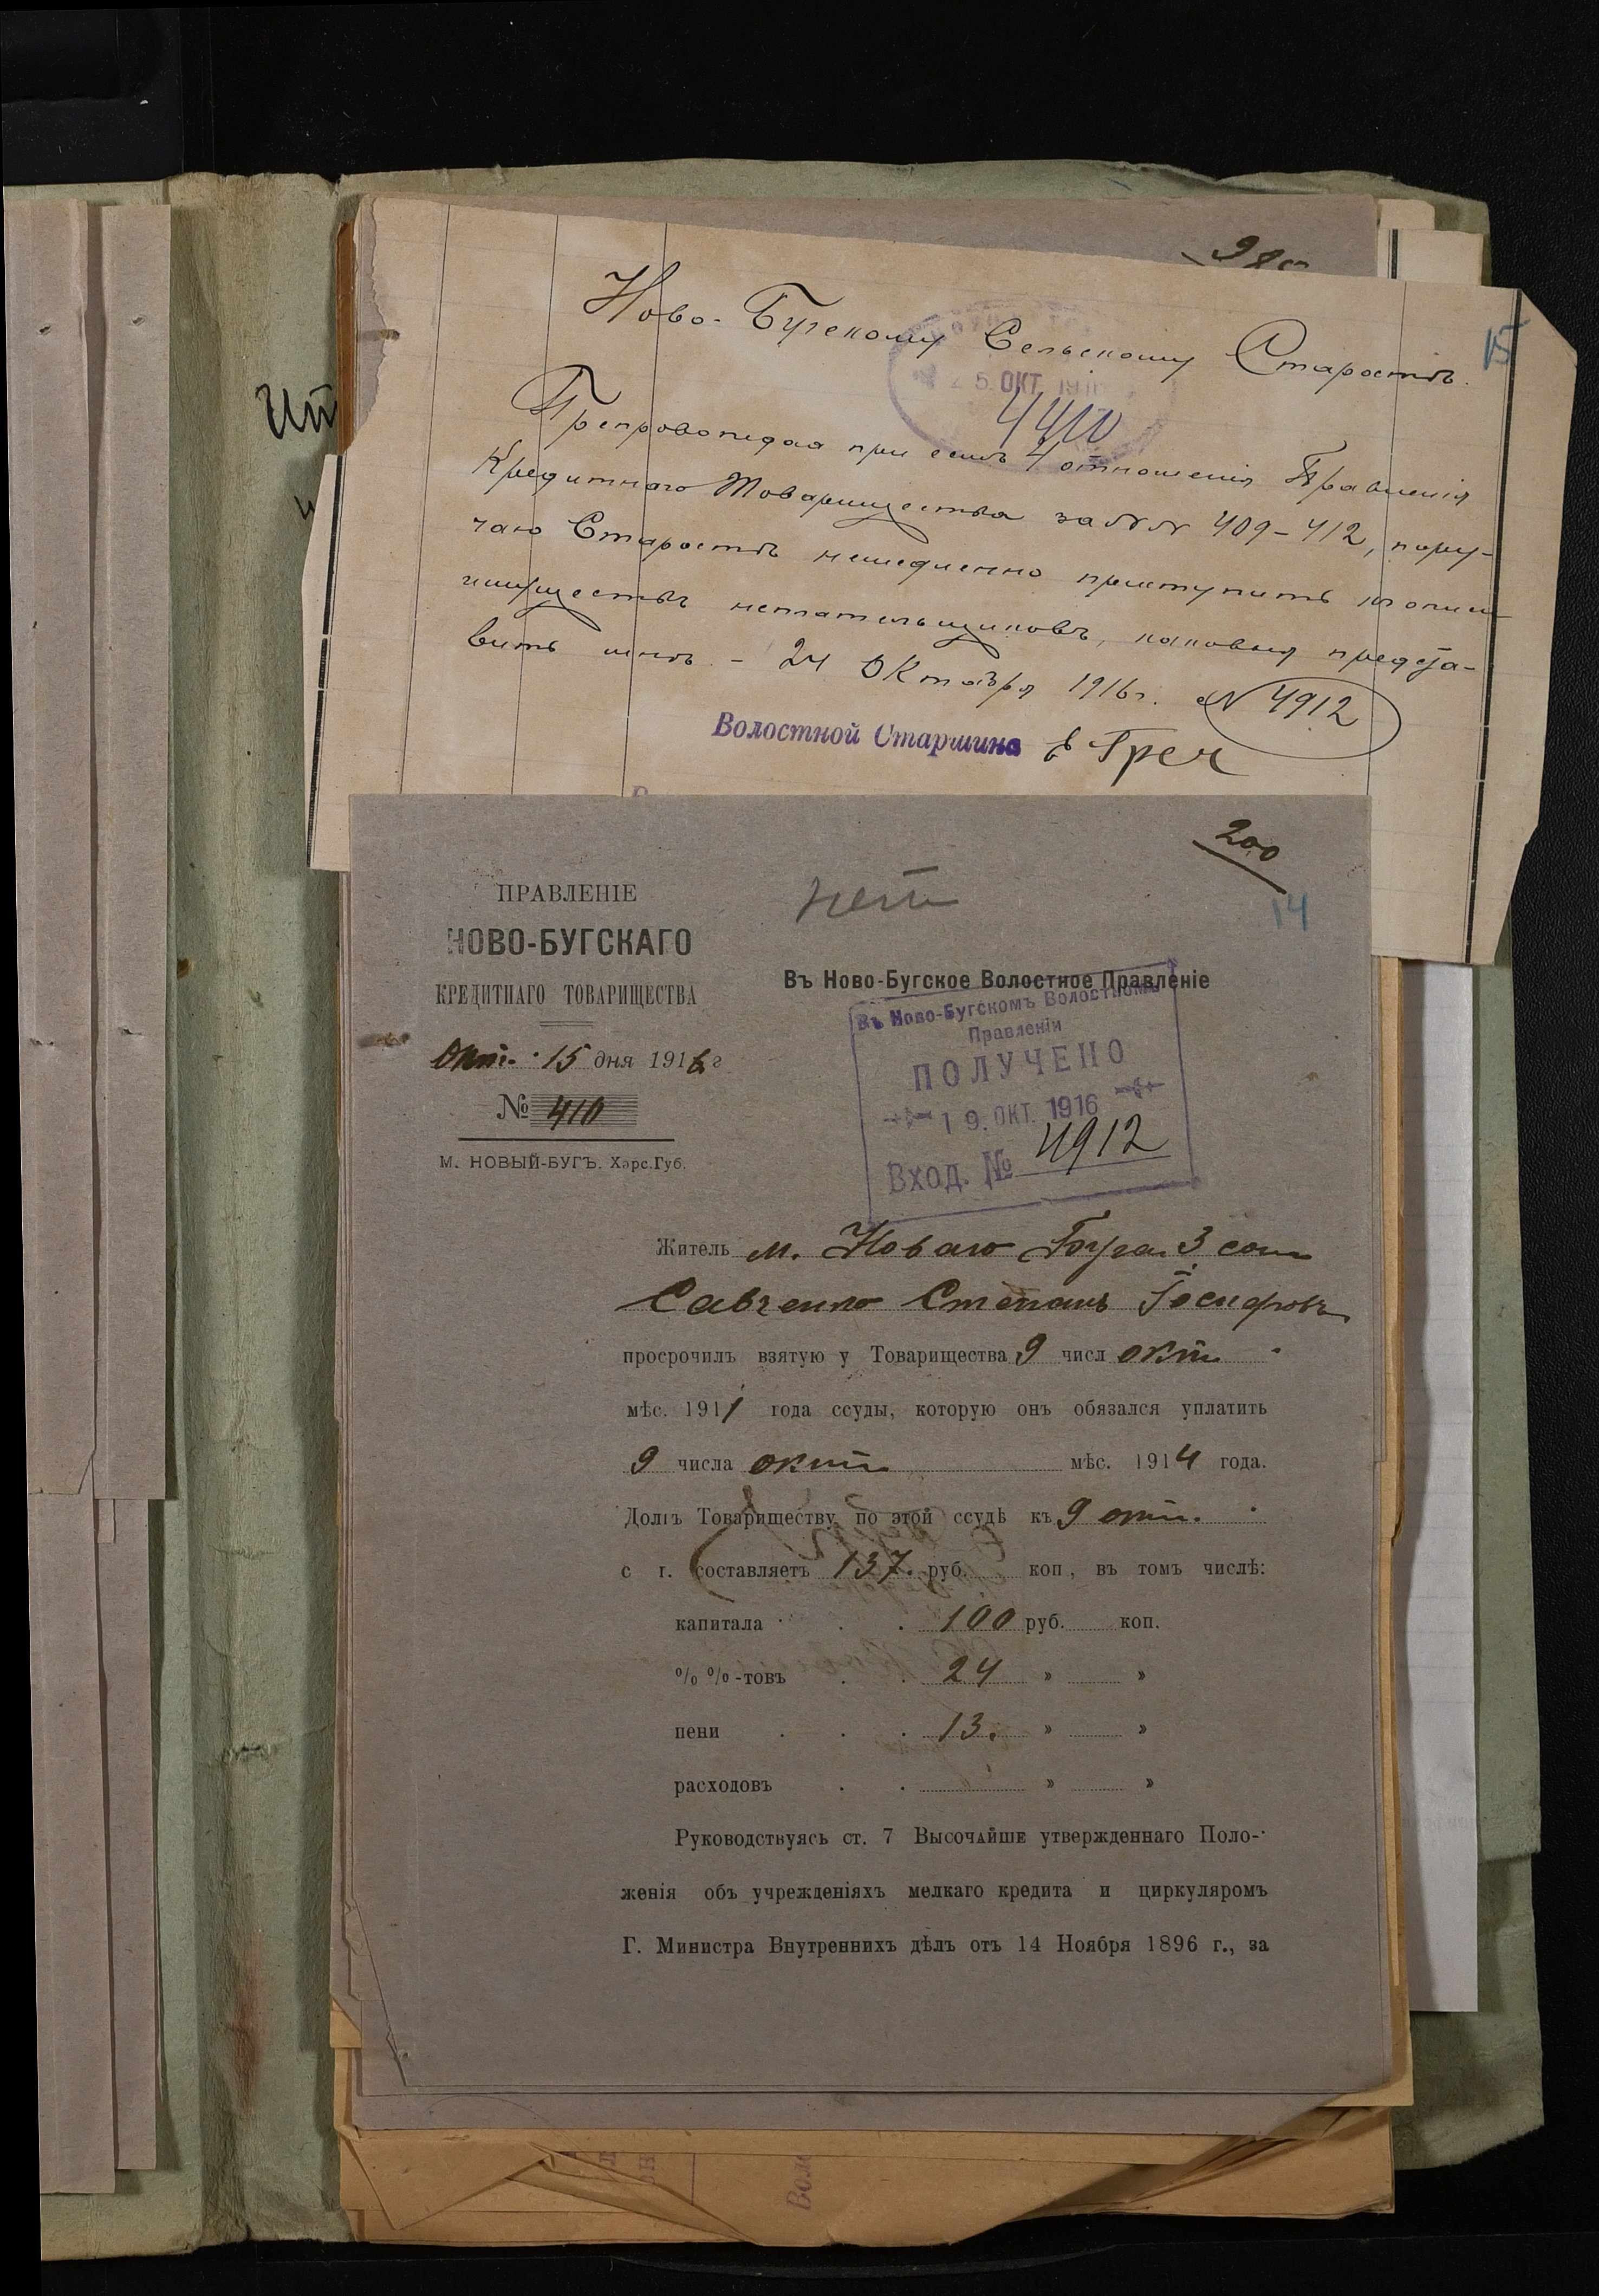 15
Ново-Бугскому Сельскому Старостѣ.
25. ОКТ. 191
4410
Препровождая при семъ 4 отношенія Правленія
Кредитнаго Товарищества за №№ 409-412, пору-
чаю Старостѣ немедленно приступить къ описи
имуществъ неплательщиковъ, каковыя предста-
вить мнѣ. - 24 Октября 1916 г. № 4912
Волостной Старшина Греч
200
14
нетъ
ПРАВЛЕНІЕ
НОВО-БУГСКАГО
КРЕДИТНАГО ТОВАРИЩЕСТВА
Окт. 15 дня 1916 г
№ 410
М. НОВЫЙ-БУГЪ. Херс.Губ.
Въ Ново-Бугское Волостное Правленіе
Въ Ново-Бугскомъ Волостномъ
Правленіи
ПОЛУЧЕНО
19. ОКТ. 1916
Вход. № 4912
Житель м. Новаго Буга 3 сот
Савченко Степанъ Іосифовъ
просрочилъ взятую у Товарищества 9 числ окт
мѣс. 1911 года ссуды, которую онъ обязался уплатить
9 числа окт мѣс. 1914 года.
Долгъ Товариществу по этой ссудѣ къ 9 окт.
с г. составляетъ 137. руб. коп, въ томъ числѣ:
капитала . . 100 руб. коп.
% %-товъ . . 24 » »
пени . . . 13. » »
расходовъ . . » »
Руководствуясь ст. 7 Высочайше утвержденнаго Поло-
женія объ учрежденіяхъ мелкаго кредита и циркуляромъ
Г. Министра Внутреннихъ дѣлъ отъ 14 Ноября 1896 г., за